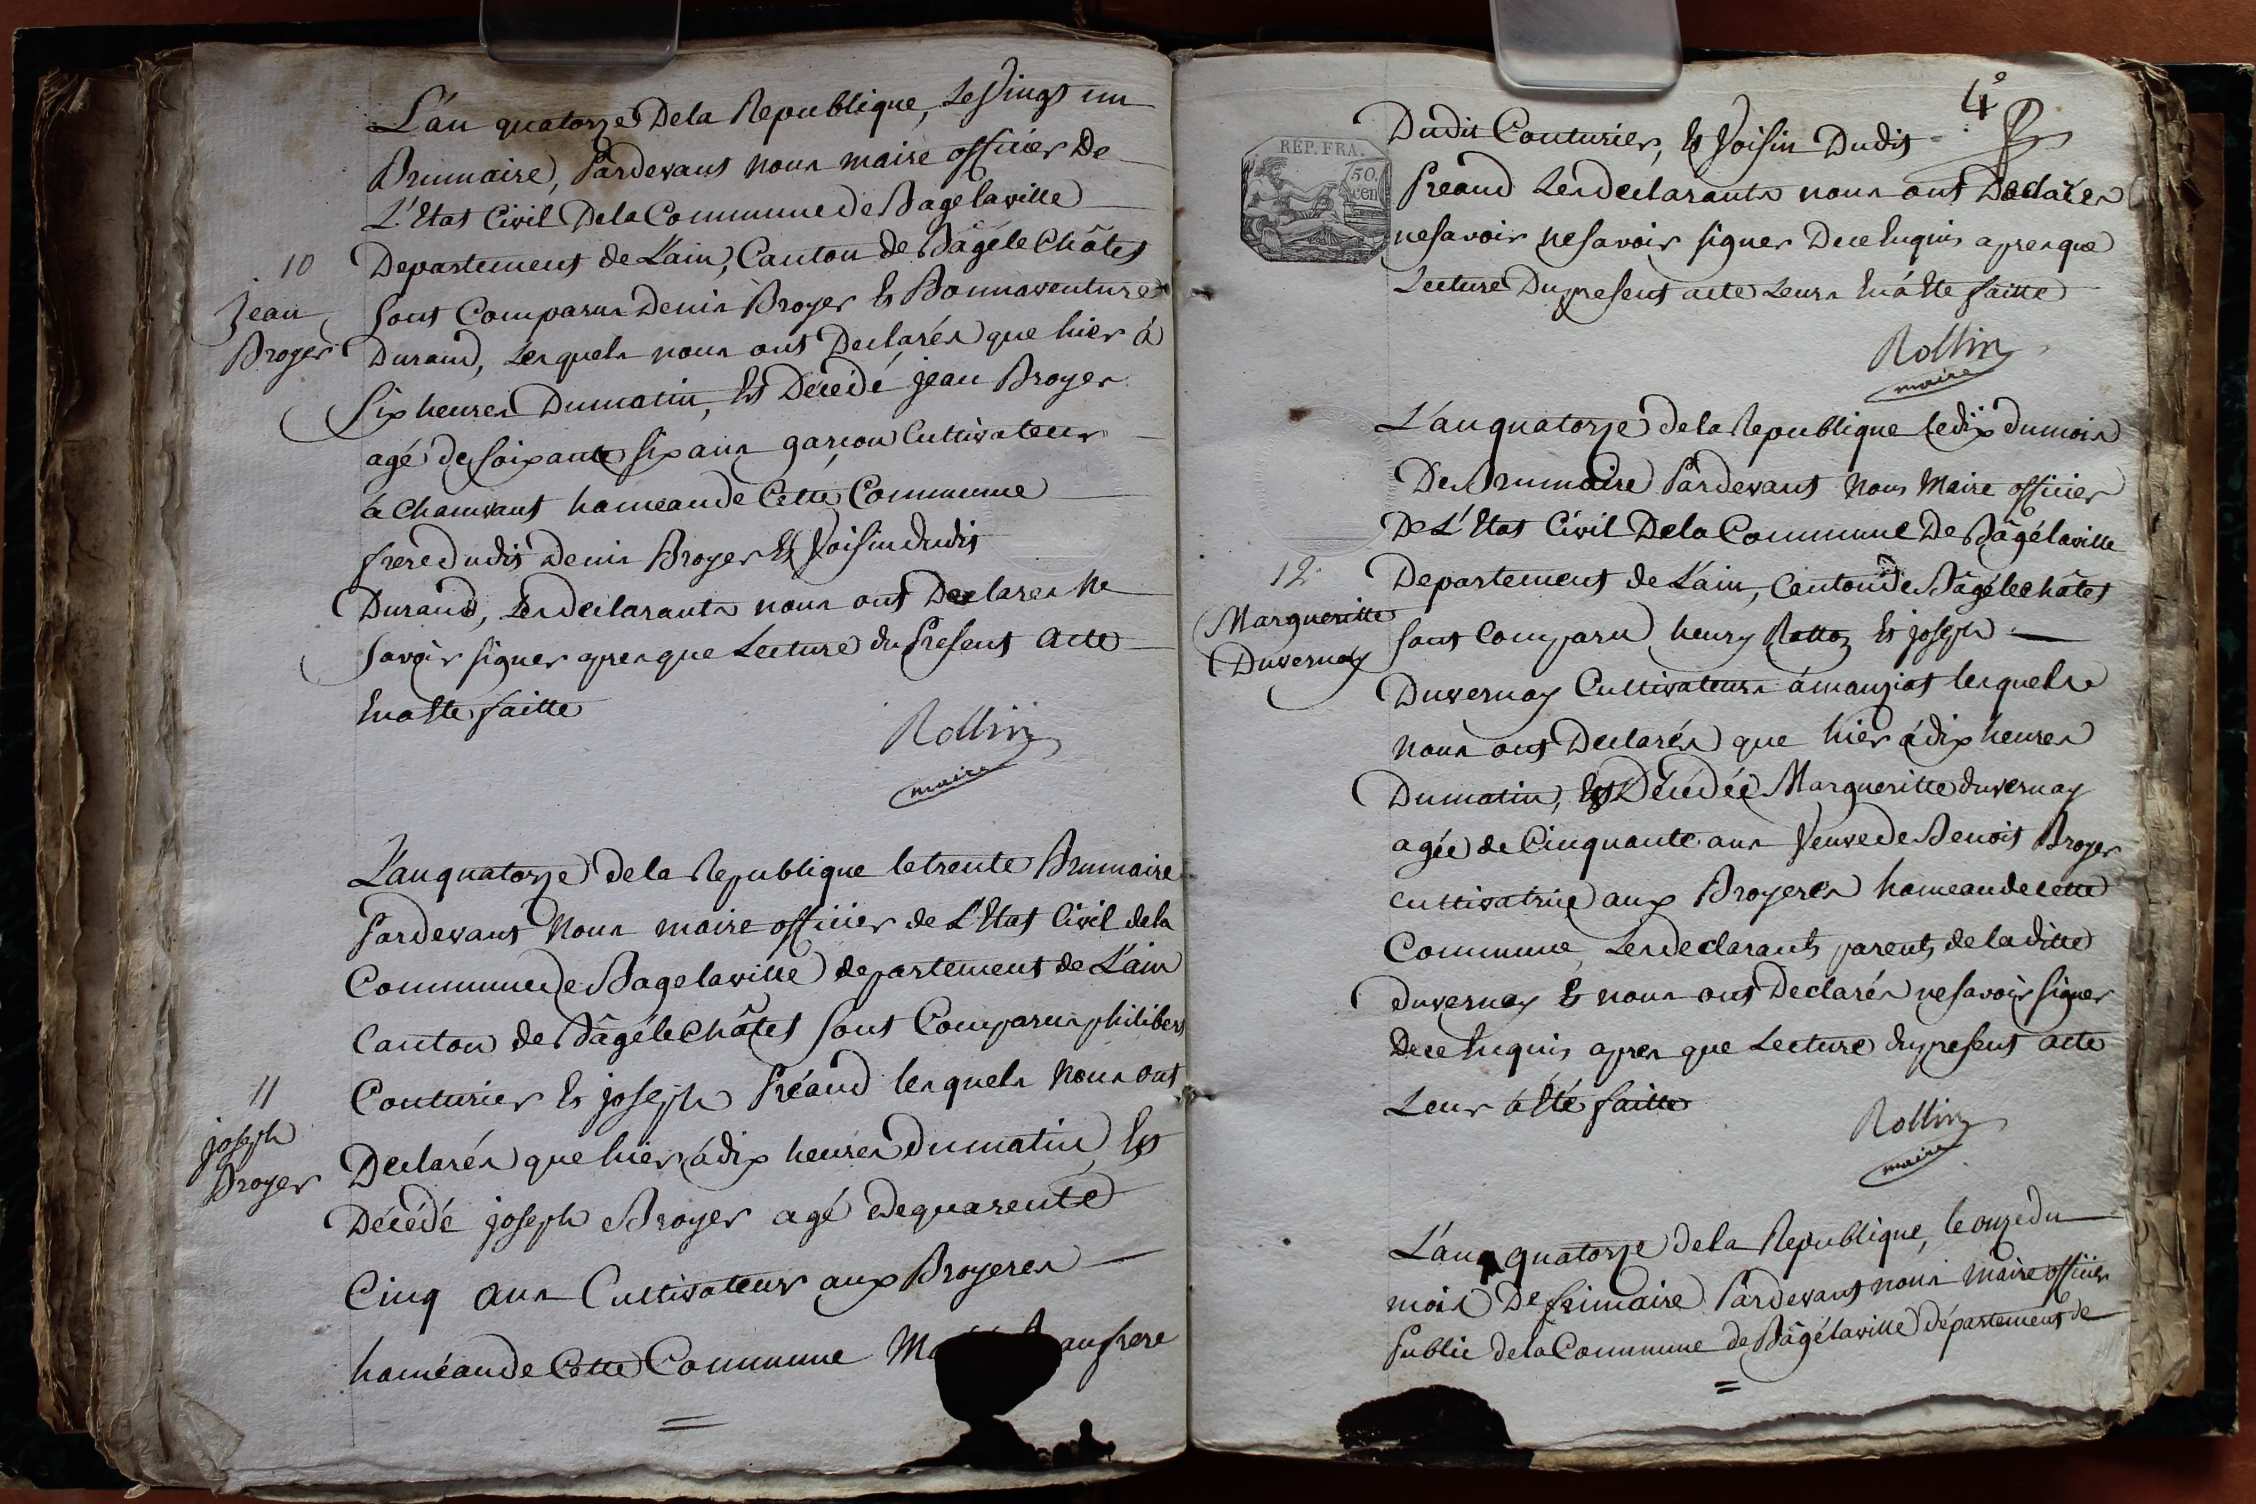 L'an quatorze De la Republique, Le Vingt un
Brumaire, Pardevant nous maire officier De
L'Etat Civil De la Commune de Bagelaville
Departement de L'ain, Canton de Bâgé le Châtel
10
Jean
Broyer
sont Comparus Denis Broyer Et Bonnaventure
Durand, Lesquels nous ont Declarés que hier à
Six heures Du matin, Est Décédé jean Broyer
agé de soixante six ans garcon Cultivateur
à Chamvant hameau de Cette Commune
frere dudit Denis Broyer Et Voisin dudit
Durand, Les declarants nous ont Declares ne
savoir signer apres que Lecture du Present acte
En a Eté faitte
Rollin
maire
L'an quatorze de la Republique le trente Brumaire
Pardevant Nous maire officier de L'Etat Civil de la
Commune de Bagelaville departement de L'ain
Canton de Bâgé le Châtel sont Comparus philibert
11
joseph
Broyer
Couturier Et joseph Préaud lesquels Nous ont
Declarés que hier à dix heures Du matin Est
Décédé joseph Broyer agé de quarente
Cinq ans Cultivateur aux Broyeres
haméau de Cette Commune
4e
REP. FRA.
50.
cen
Dudit Couturier, Et Voisin Dudit
Preaud Les declarants nous ont Declarés
ne savoir ne savoir signer De ce Enquis apres que
Lecture Du present acte Leurs En à Eté faitte
Rollin
maire
L'an quatorze de la Republique le dix du mois
De Brumaire Pardevant Nous Maire officier
De L'Etat Civil De la Commune De Bâgélaville
12
Margueritte
Duvernay
Departement de L'ain, Canton de Bâgé le châtel
sont Comparu henry Et joseph
Duvernay Cultivateurs à manziat lesquels
nous ont Declarés que hier à dix heures
Du matin, Est Décédée Margueritte duvernay
agée de Cinquante ans Veuve de Benoit Broyer
cultivatrice aux Broyeres hameau de cette
Commune, Les declarants parents de la ditte
duvernay Et nous ont Declarés ne savoir signer
De ce Enquis apres que Lecture du present acte
Leur à Eté faitte
Rollin
maire
L'an quatorze de la Republique, le onze du
mois De frimaire Pardevant nous maire officier
Public de la Commune de Bâgélaville département de